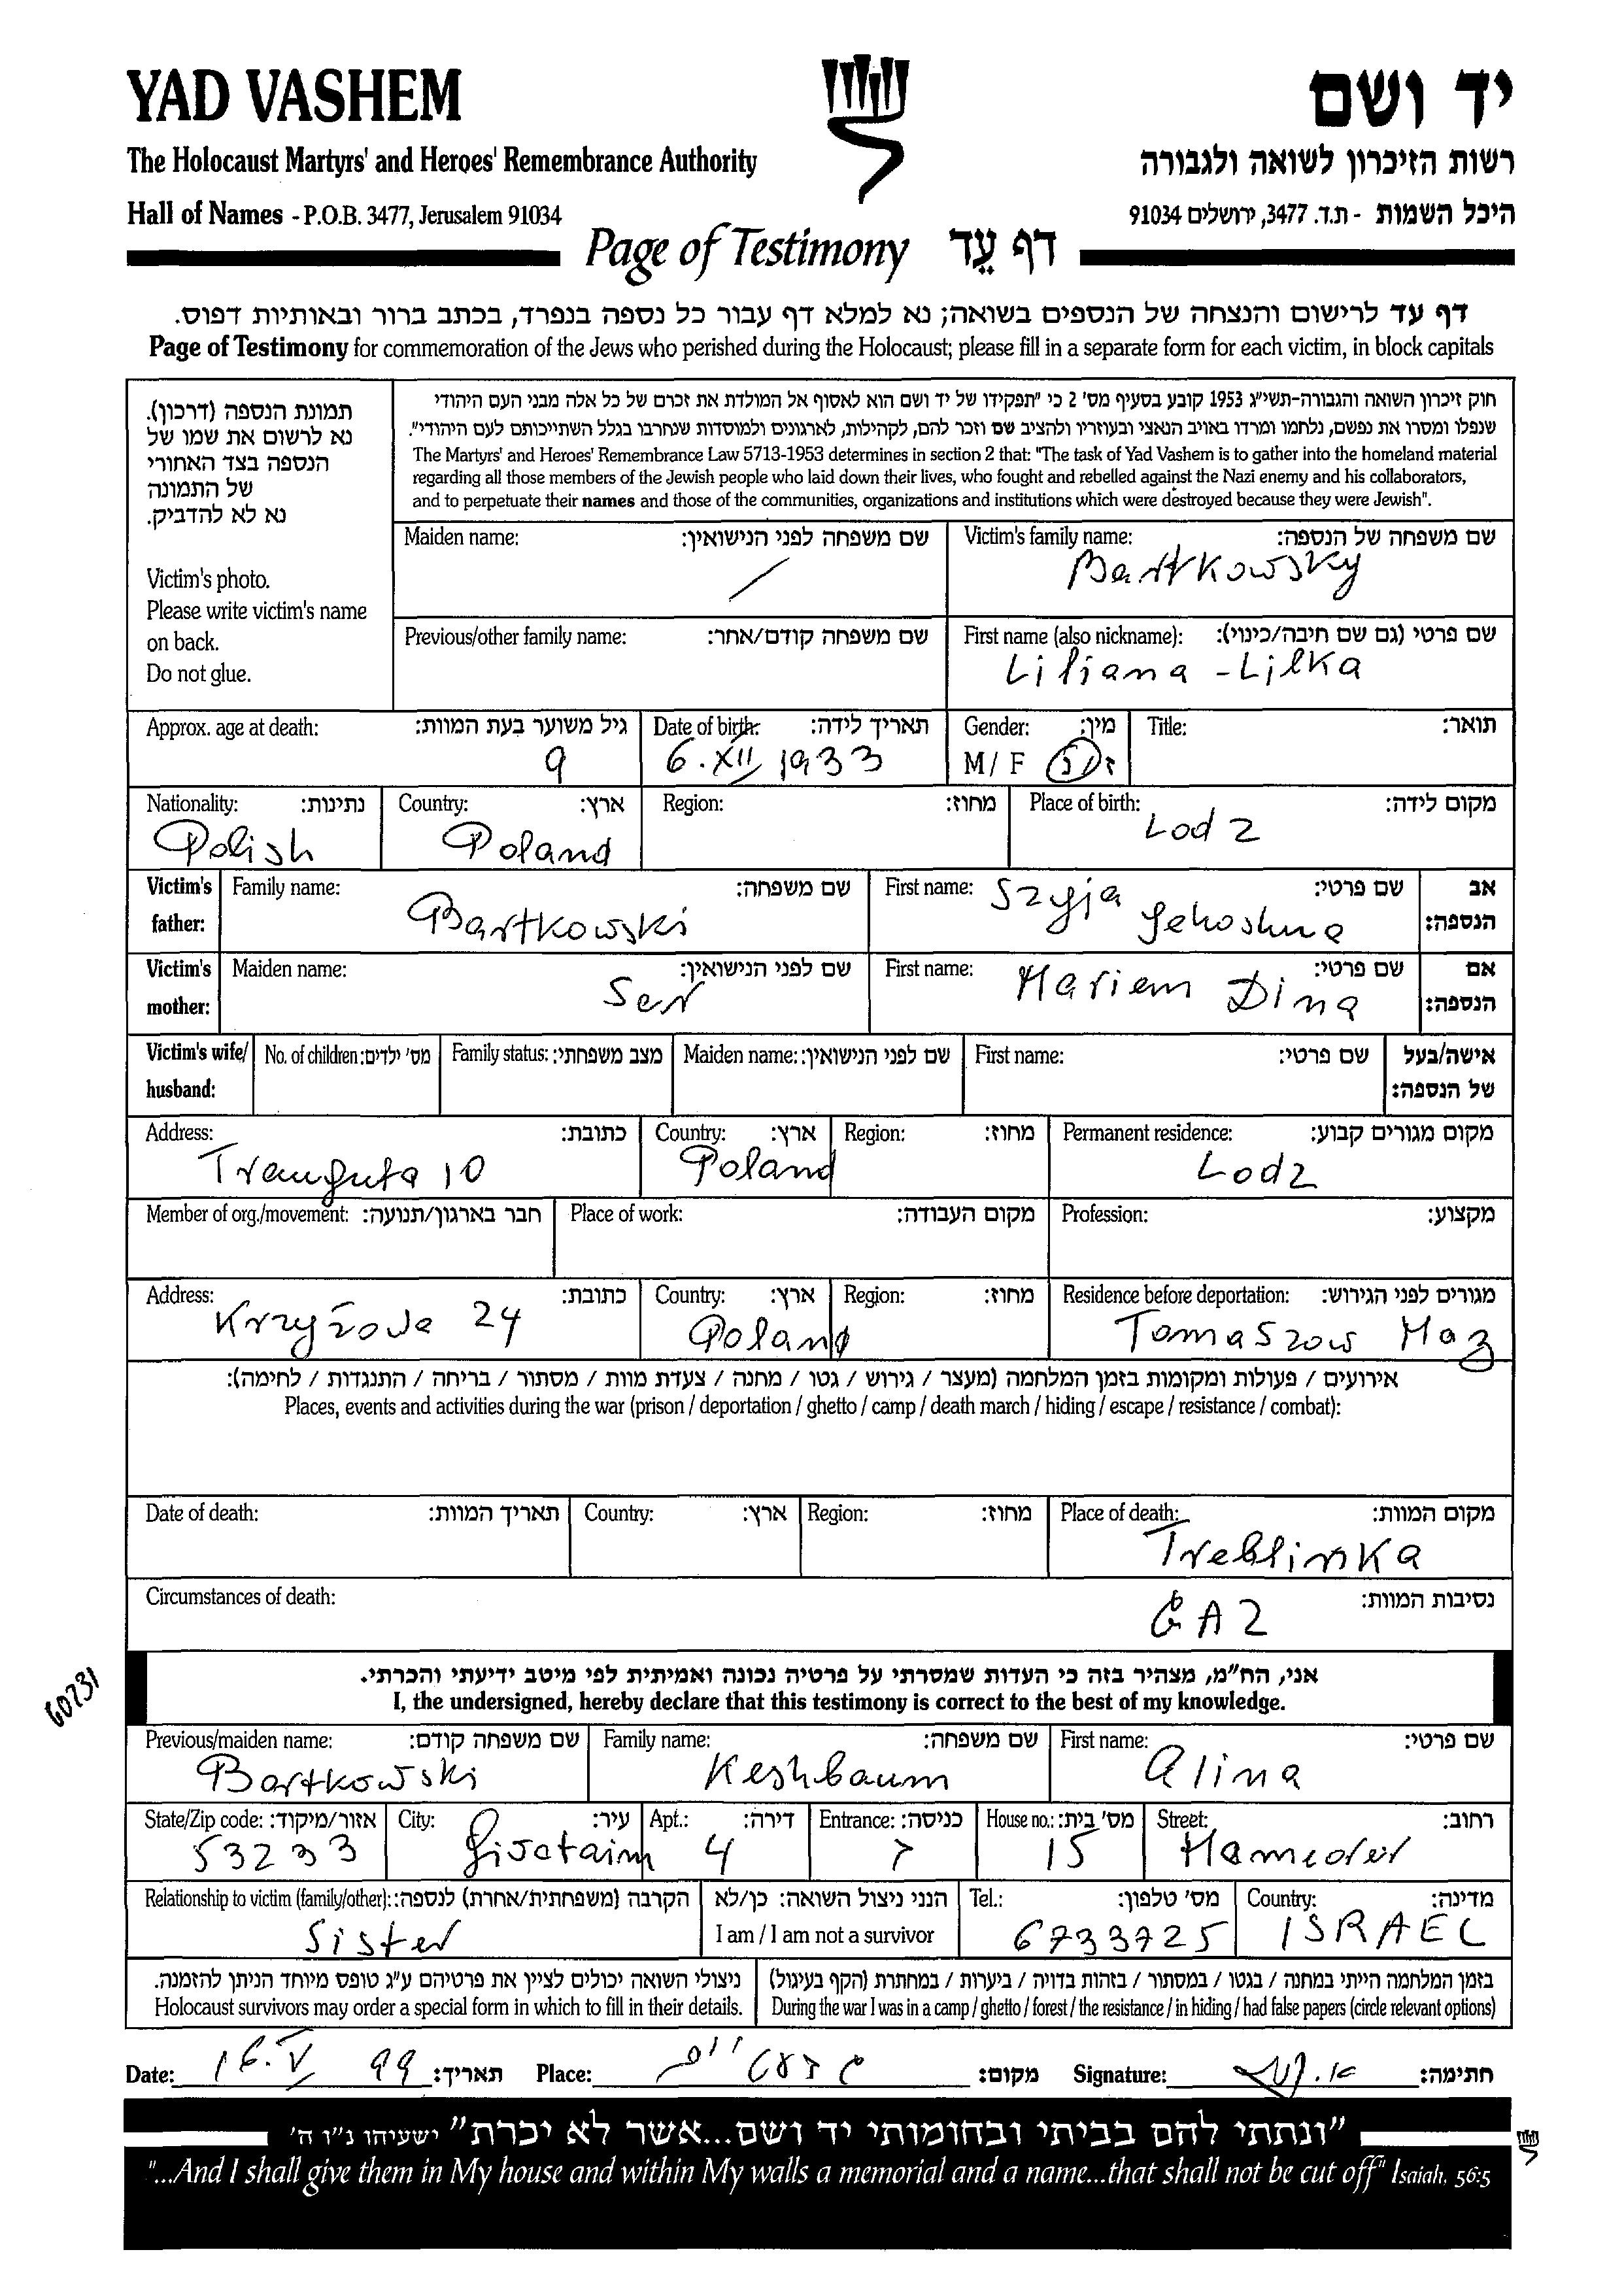 YAD VASHEM
יד ושם
The Holocaust Martyrs' and Heroes' Remembrance Authority
רשות הזיכרון לשואה ולגבורה
Hall of Names - P.O.B. 3477, Jerusalem 91034
היכל השמות - ת.ד. 3477, ירושלים 91034
Page of Testimony דף עֵד
דף עד לרישום והנצחה של הנספים בשואה; נא למלא דף עבור כל נספה בנפרד, בכתב ברור ובאותיות דפוס.
Page of Testimony for commemoration of the Jews who perished during the Holocaust; please fill in a separate form for each victim, in block capitals
תמונת הנספה (דרכון).
נא לרשום את שמו של
הנספה בצד האחורי
של התמונה
נא לא להדביק.
Victim's photo.
Please write victim's name
on back.
Do not glue.
חוק זיכרון השואה והגבורה-תשי"ג 1953 קובע בסעיף מס' 2 כי "תפקידו של יד ושם הוא לאסוף אל המולדת את זכרם של כל אלה מבני העם היהודי
שנפלו ומסרו את נפשם, נלחמו ומרדו באויב הנאצי ובעוזריו ולהציב שם וזכר להם, לקהילות, לארגונים ולמוסדות שנחרבו בגלל השתייכותם לעם היהודי".
The Martyrs' and Heroes' Remembrance Law 5713-1953 determines in section 2 that: "The task of Yad Vashem is to gather into the homeland material
regarding all those members of the Jewish people who laid down their lives, who fought and rebelled against the Nazi enemy and his collaborators,
and to perpetuate their names and those of the communities, organizations and institutions which were destroyed because they were Jewish".
Maiden name: שם משפחה לפני הנישואין:
/
Victim's family name: שם משפחה של הנספה:
Bartkowsky
Previous/other family name: שם משפחה קודם/אחר:
First name (also nickname): שם פרטי (גם שם חיבה/כינוי):
Liliana - Lilka
Approx. age at death: גיל משוער בעת המוות:
9
Date of birth: תאריך לידה:
6. XII 1933
Gender: מין:
M / F ז/נ
Title: תואר:
Nationality: נתינות:
Polish
Country: ארץ:
Poland
Region: מחוז:
Place of birth: מקום לידה:
Lodz
Victim's father:
Family name: שם משפחה:
Bartkowski
First name: שם פרטי:
Szyja Jehoshua
אב הנספה:
Victim's mother:
Maiden name: שם לפני הנישואין:
Ser
First name: שם פרטי:
Mariem Dina
אם הנספה:
Victim's wife/ husband:
No. of children: מס' ילדים:
Family status: מצב משפחתי:
Maiden name: שם לפני הנישואין:
First name: שם פרטי:
אישה/בעל של הנספה:
Address: כתובת:
Trauguta 10
Country: ארץ:
Poland
Region: מחוז:
Permanent residence: מקום מגורים קבוע:
Lodz
Member of org./movement: חבר בארגון/תנועה:
Place of work: מקום העבודה:
Profession: מקצוע:
Address: כתובת:
Krzyżowa 24
Country: ארץ:
Poland
Region: מחוז:
Residence before deportation: מגורים לפני הגירוש:
Tomaszow Maz
אירועים / פעולות ומקומות בזמן המלחמה (מעצר / גירוש / גטו / מחנה / צעדת מוות / מסתור / בריחה / התנגדות / לחימה):
Places, events and activities during the war (prison / deportation / ghetto / camp / death march / hiding / escape / resistance / combat):
Date of death: תאריך המוות:
Country: ארץ:
Region: מחוז:
Place of death: מקום המוות:
Treblinka
Circumstances of death: נסיבות המוות:
GAZ
60731
אני, הח"מ, מצהיר בזה כי העדות שמסרתי על פרטיה נכונה ואמיתית לפי מיטב ידיעתי והכרתי.
I, the undersigned, hereby declare that this testimony is correct to the best of my knowledge.
Previous/maiden name: שם משפחה קודם:
Bartkowski
Family name: שם משפחה:
Keshbaum
First name: שם פרטי:
Alina
State/Zip code: אזור/מיקוד:
53233
City: עיר:
Givataim
Apt.: דירה:
4
Entrance: כניסה:
House no.: מס' בית:
15
Street: רחוב:
Hameorer
Relationship to victim (family/other): הקרבה (משפחתית/אחרת) לנספה:
Sister
הנני ניצול השואה: כן/לא
I am / I am not a survivor
Tel.: מס' טלפון:
6733725
Country: מדינה:
ISRAEL
ניצולי השואה יכולים לציין את פרטיהם ע"ג טופס מיוחד הניתן להזמנה.
Holocaust survivors may order a special form in which to fill in their details.
בזמן המלחמה הייתי במחנה / בגטו / במסתור / בזהות בדויה / ביערות / במחתרת (הקף בעיגול)
During the war I was in a camp / ghetto / forest / the resistance / in hiding / had false papers (circle relevant options)
Date: 16. V 99 תאריך:
Place: גבעתיים מקום:
Signature: חתימה:
"ונתתי להם בביתי ובחומותי יד ושם...אשר לא יכרת" ישעיהו נ"ו ה'
"...And I shall give them in My house and within My walls a memorial and a name...that shall not be cut off" Isaiah, 56:5